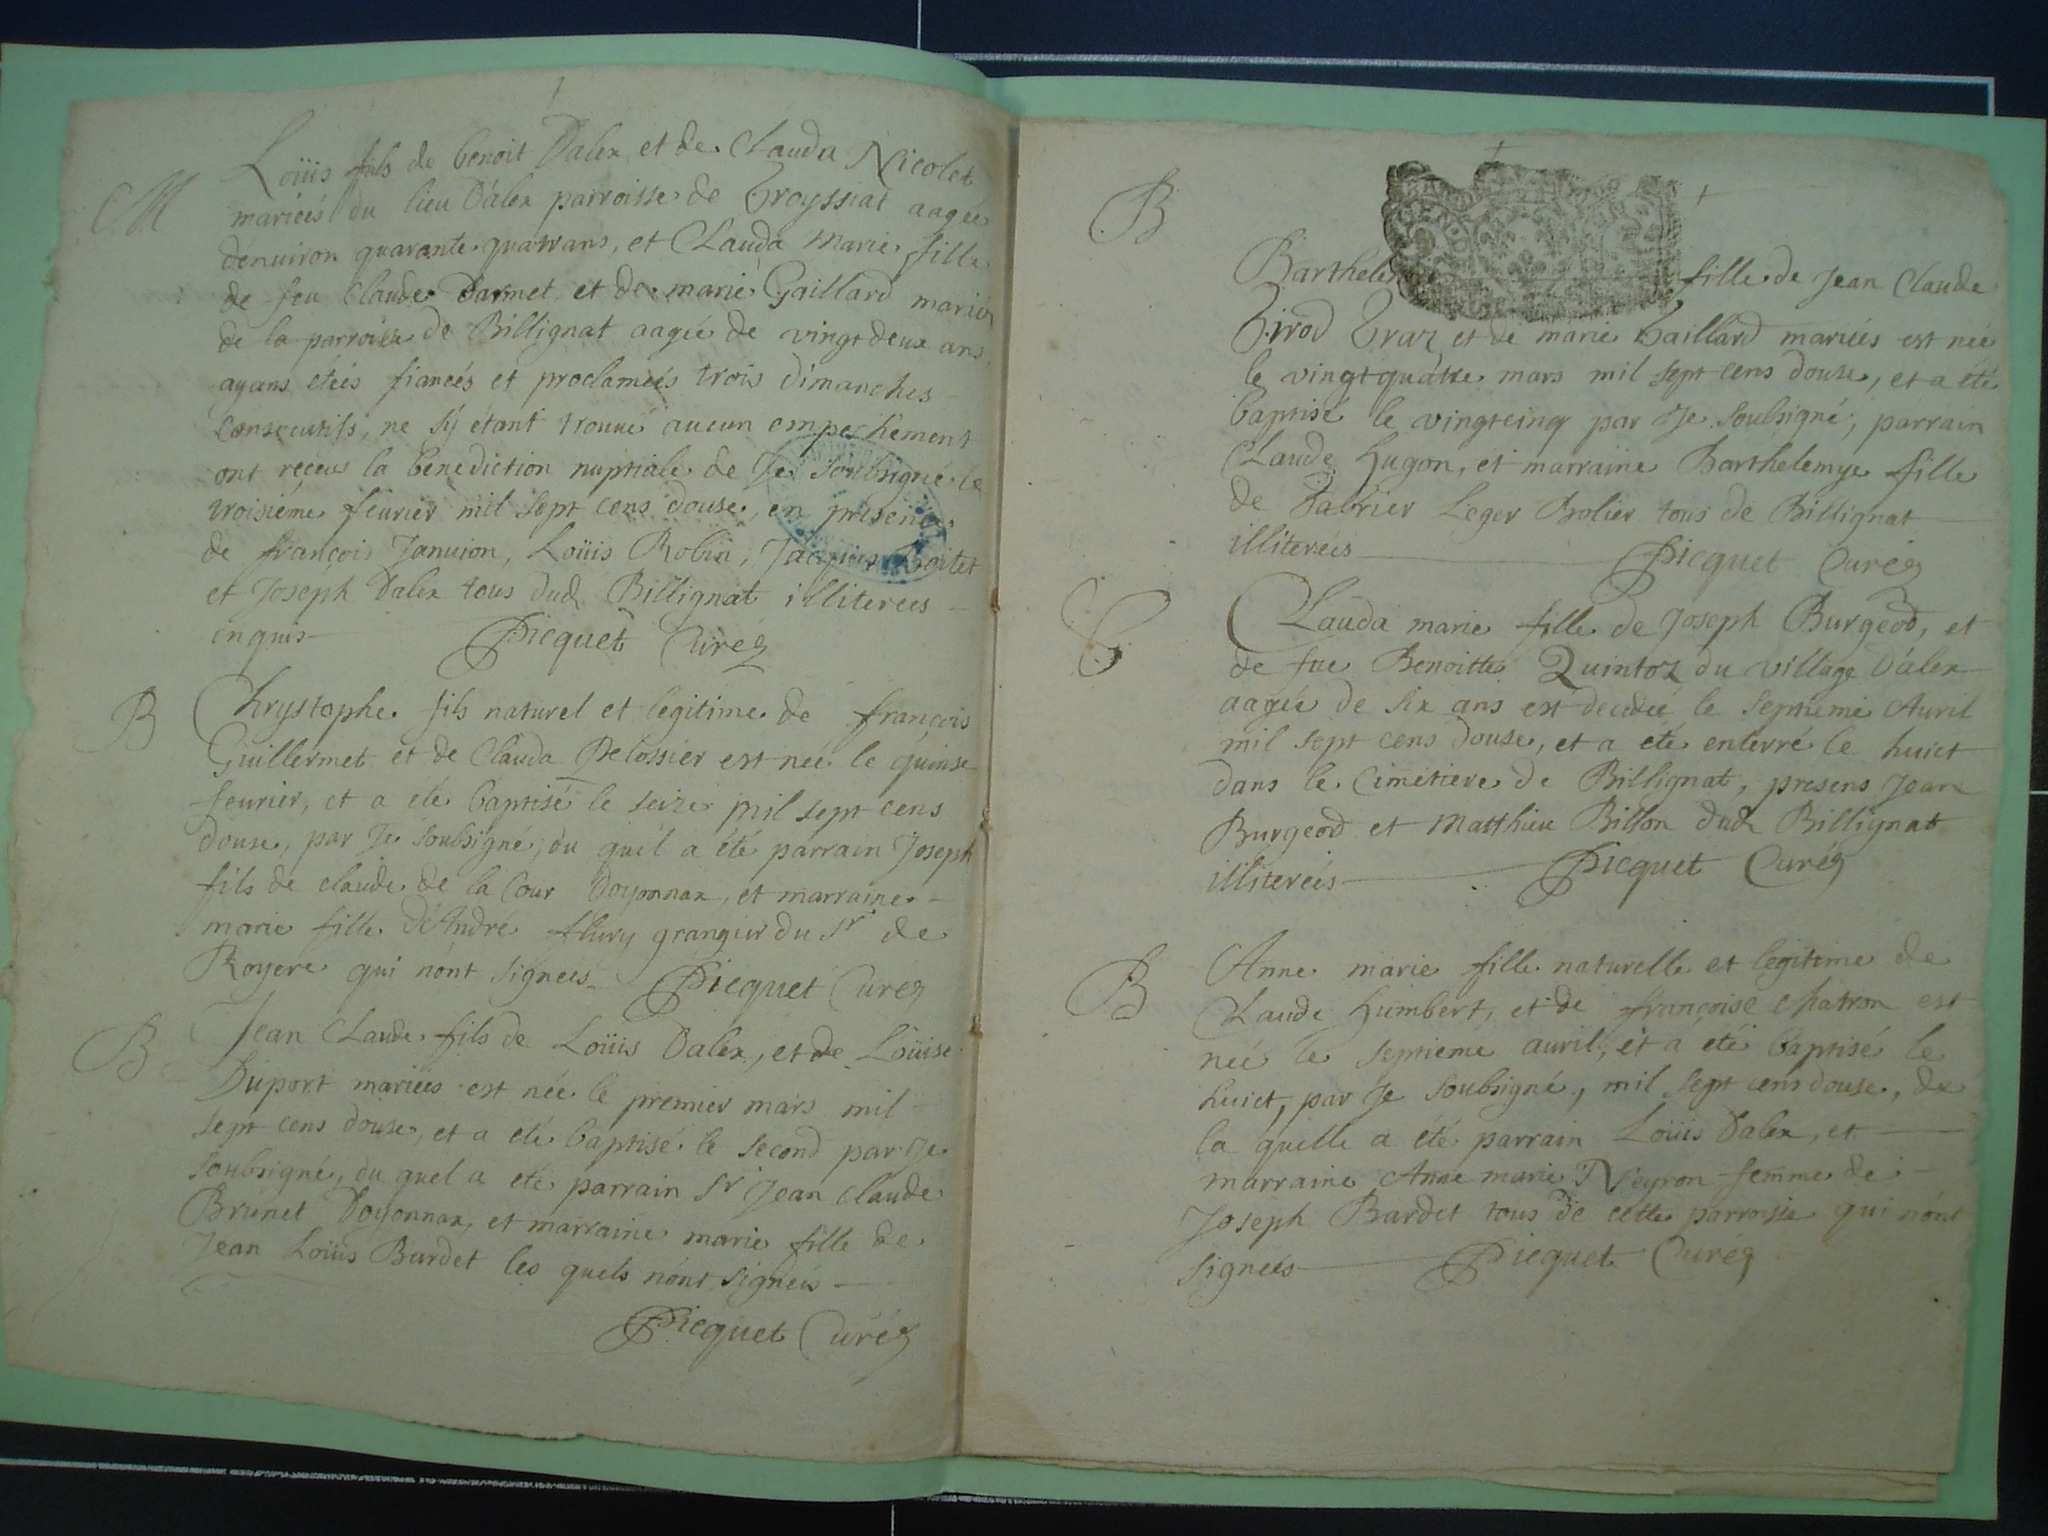 M
Loüis fils de benoit Dalex et de Clauda Nicolet
mariees du lieu D'alex parroisse de Groyssiat aagée
denuiron quarante quatrans, et Clauda Marie fille
de feu Claude Darmet et de marie Gaillard maries
de la parroisse de Billignat aagée de vingt deux ans
ayans etéés fiancés et proclameés trois dimanches
consecutifs, ne sÿ étant trouué aucun empechement
ont reçeus la benediction nuptiale de Je Soubsigné le
troisiéme feurier mil sept cens douse, en presence
de françois Januion, Loüis Robin, Jacques
et Joseph Dalex tous dud Billignat illiterees
enquis Picquet Curéz
B
Chrystophe fils naturel et legitime de françois
Guillermet et de Clauda Pelossier est née le quinse
feurier, et a eté baptisé le seize mil sept cens
douse, par Je soubsigné, du quel a été parrain Joseph
fils de claude de la Cour Doyonnax, et marraine
marie fille d'André fleury grangier du Sr de
Royere qui nónt signees Picquet Curéz
B
Jean Claude fils de Loüis Dalex, et de Loüise
Duport mariées est née le premier mars mil
sept cens douse, et a eté baptisé le second par Je
soubsigné, du quel a eté parrain Sr Jean Claude
Brunet Doyonnax, et marraine marie fille de
Jean Loüis Bardet les quels nónt signeés
Picquet Curéz
B
GEN
fille de Jean Claude
Tirod et de marie Gaillard mariées est née
le vingtquatre mars mil sept cens douse, et a été
baptisé le vingtcinq par Je soubsigné, parrain
Claude Hugon, et marraine Barthelemye fille
de Leger Bolier tous de Billignat
illiterees Picquet Curéz
C
Clauda marie fille de Joseph Burgeod, et
de fue Benoitte Quintoz du village D'alex
aagée de six ans est decedée le septieme Auril
mil sept cens douse, et a eté enterré le huict
dans le Cimetiere de Billignat, presens Jean
Burgeod et Matthieu Billon dud Billignat
illiteréés Picquet Curéz
B
Anne marie fille naturelle et legitime de
Claude Humbert, et de françoise Chatron est
née le septieme auril, et a eté baptisé le
huict, par Je soubsigné, mil sept cens douse, de
la quelle a été parrain Loüis Dalex, et
marraine Anne marie Neyron femme de
Joseph Bardet tous de cette parroisse qui nónt
signeés Picquet Curéz